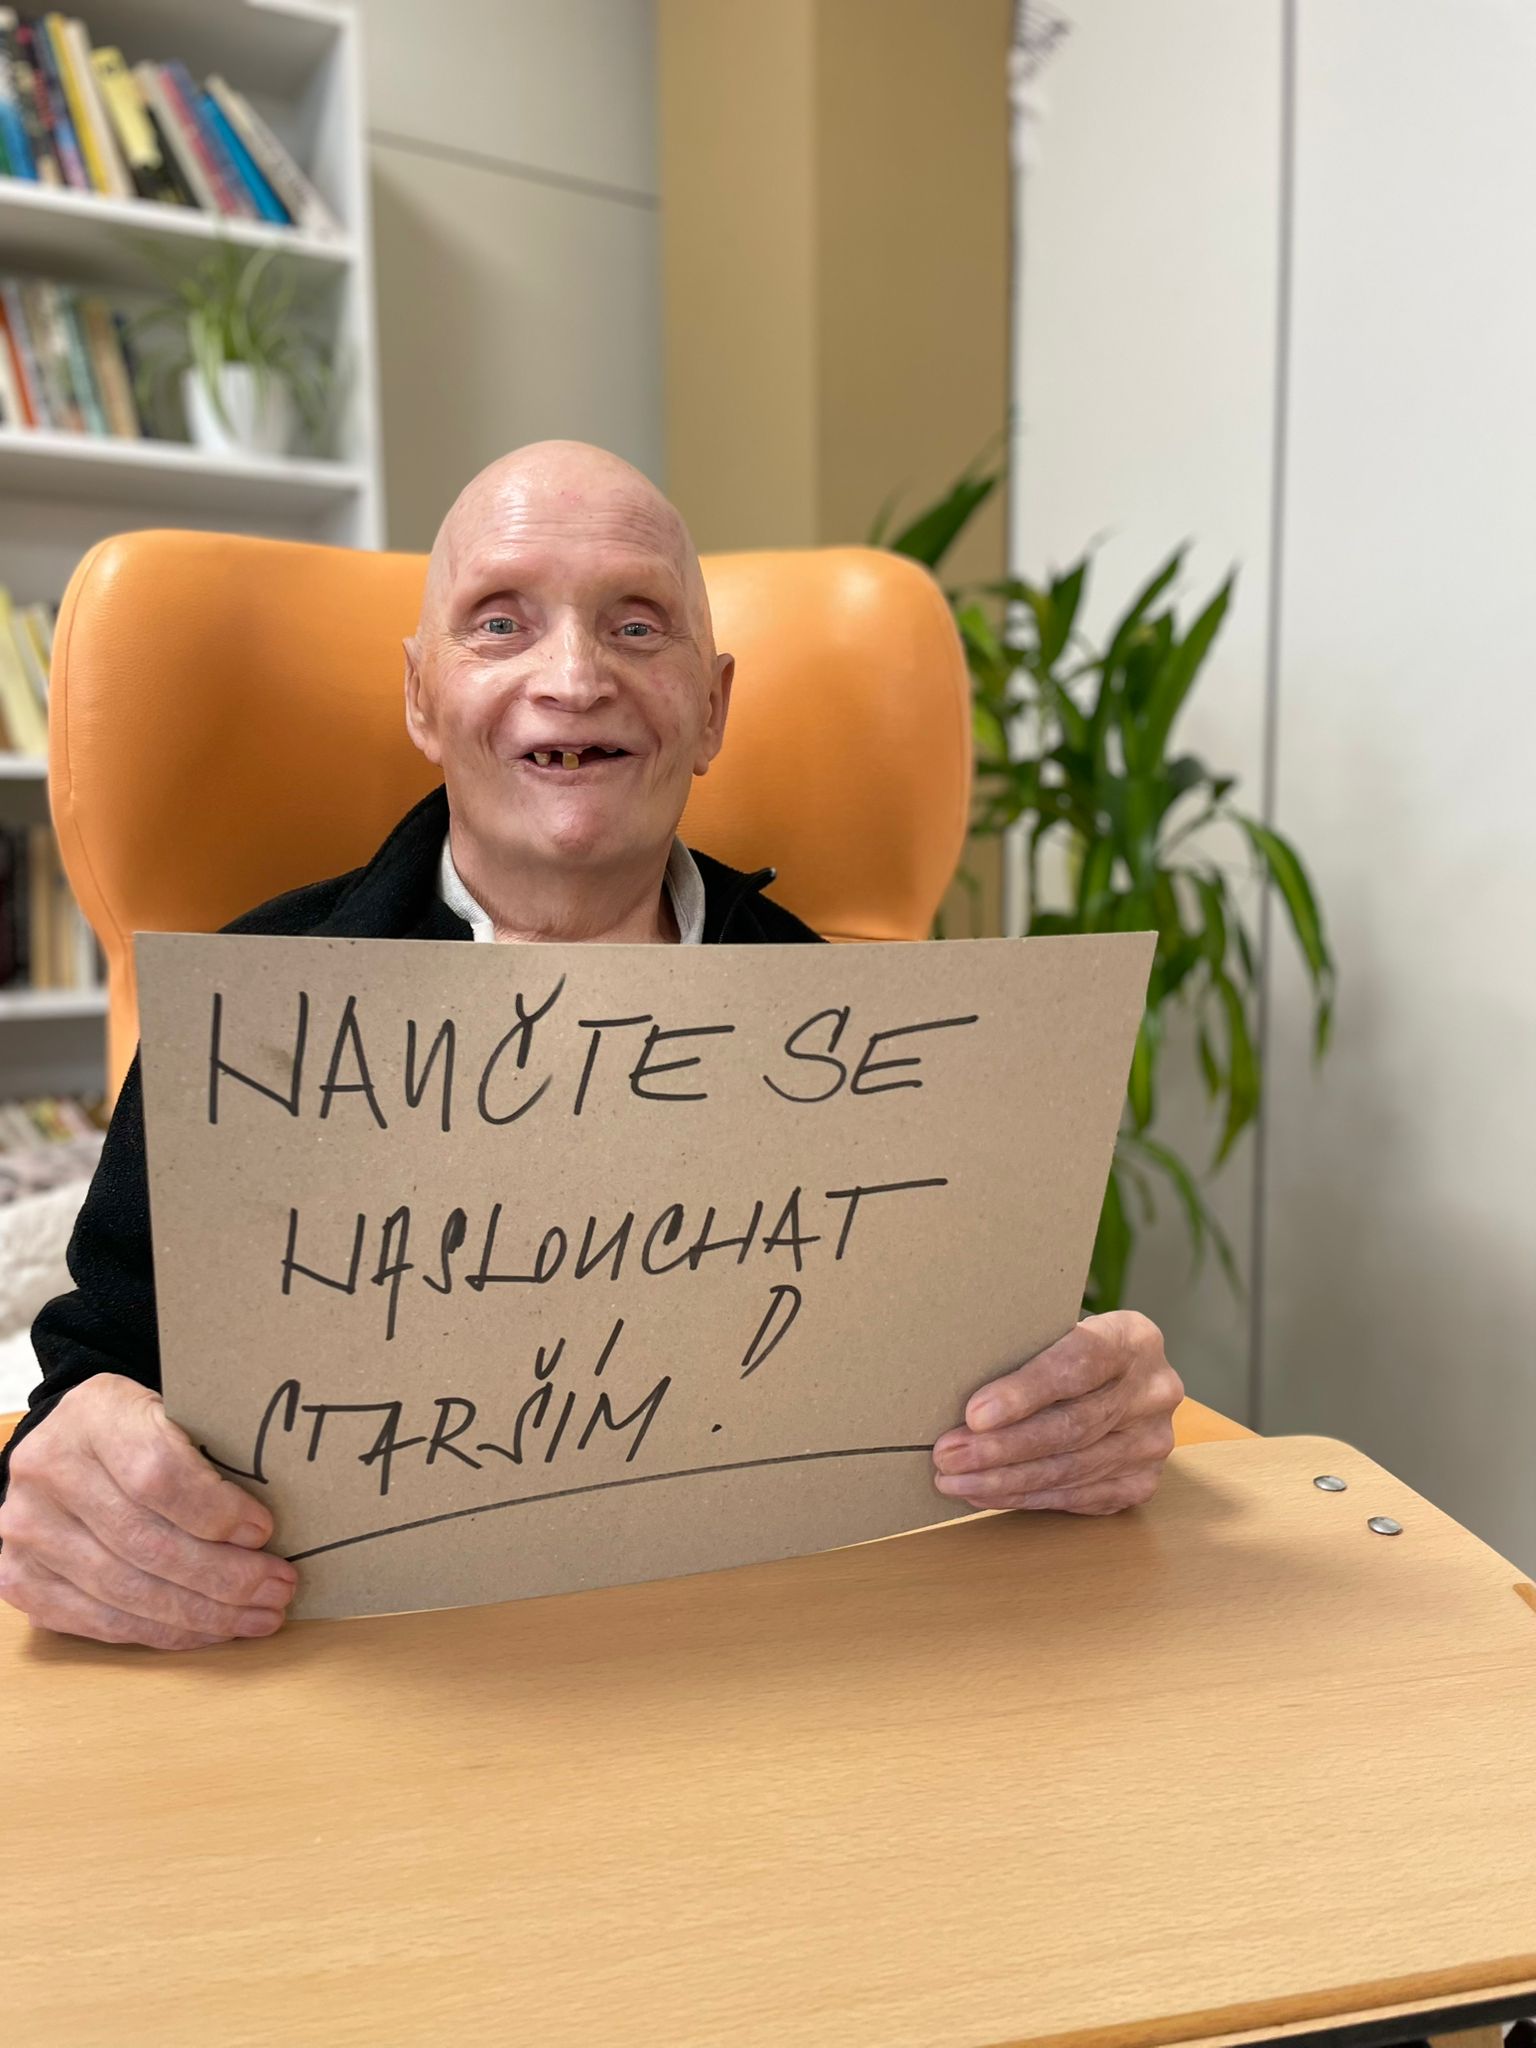 NAUČTE SE
NASLOUCHAT
STARŠÍM.